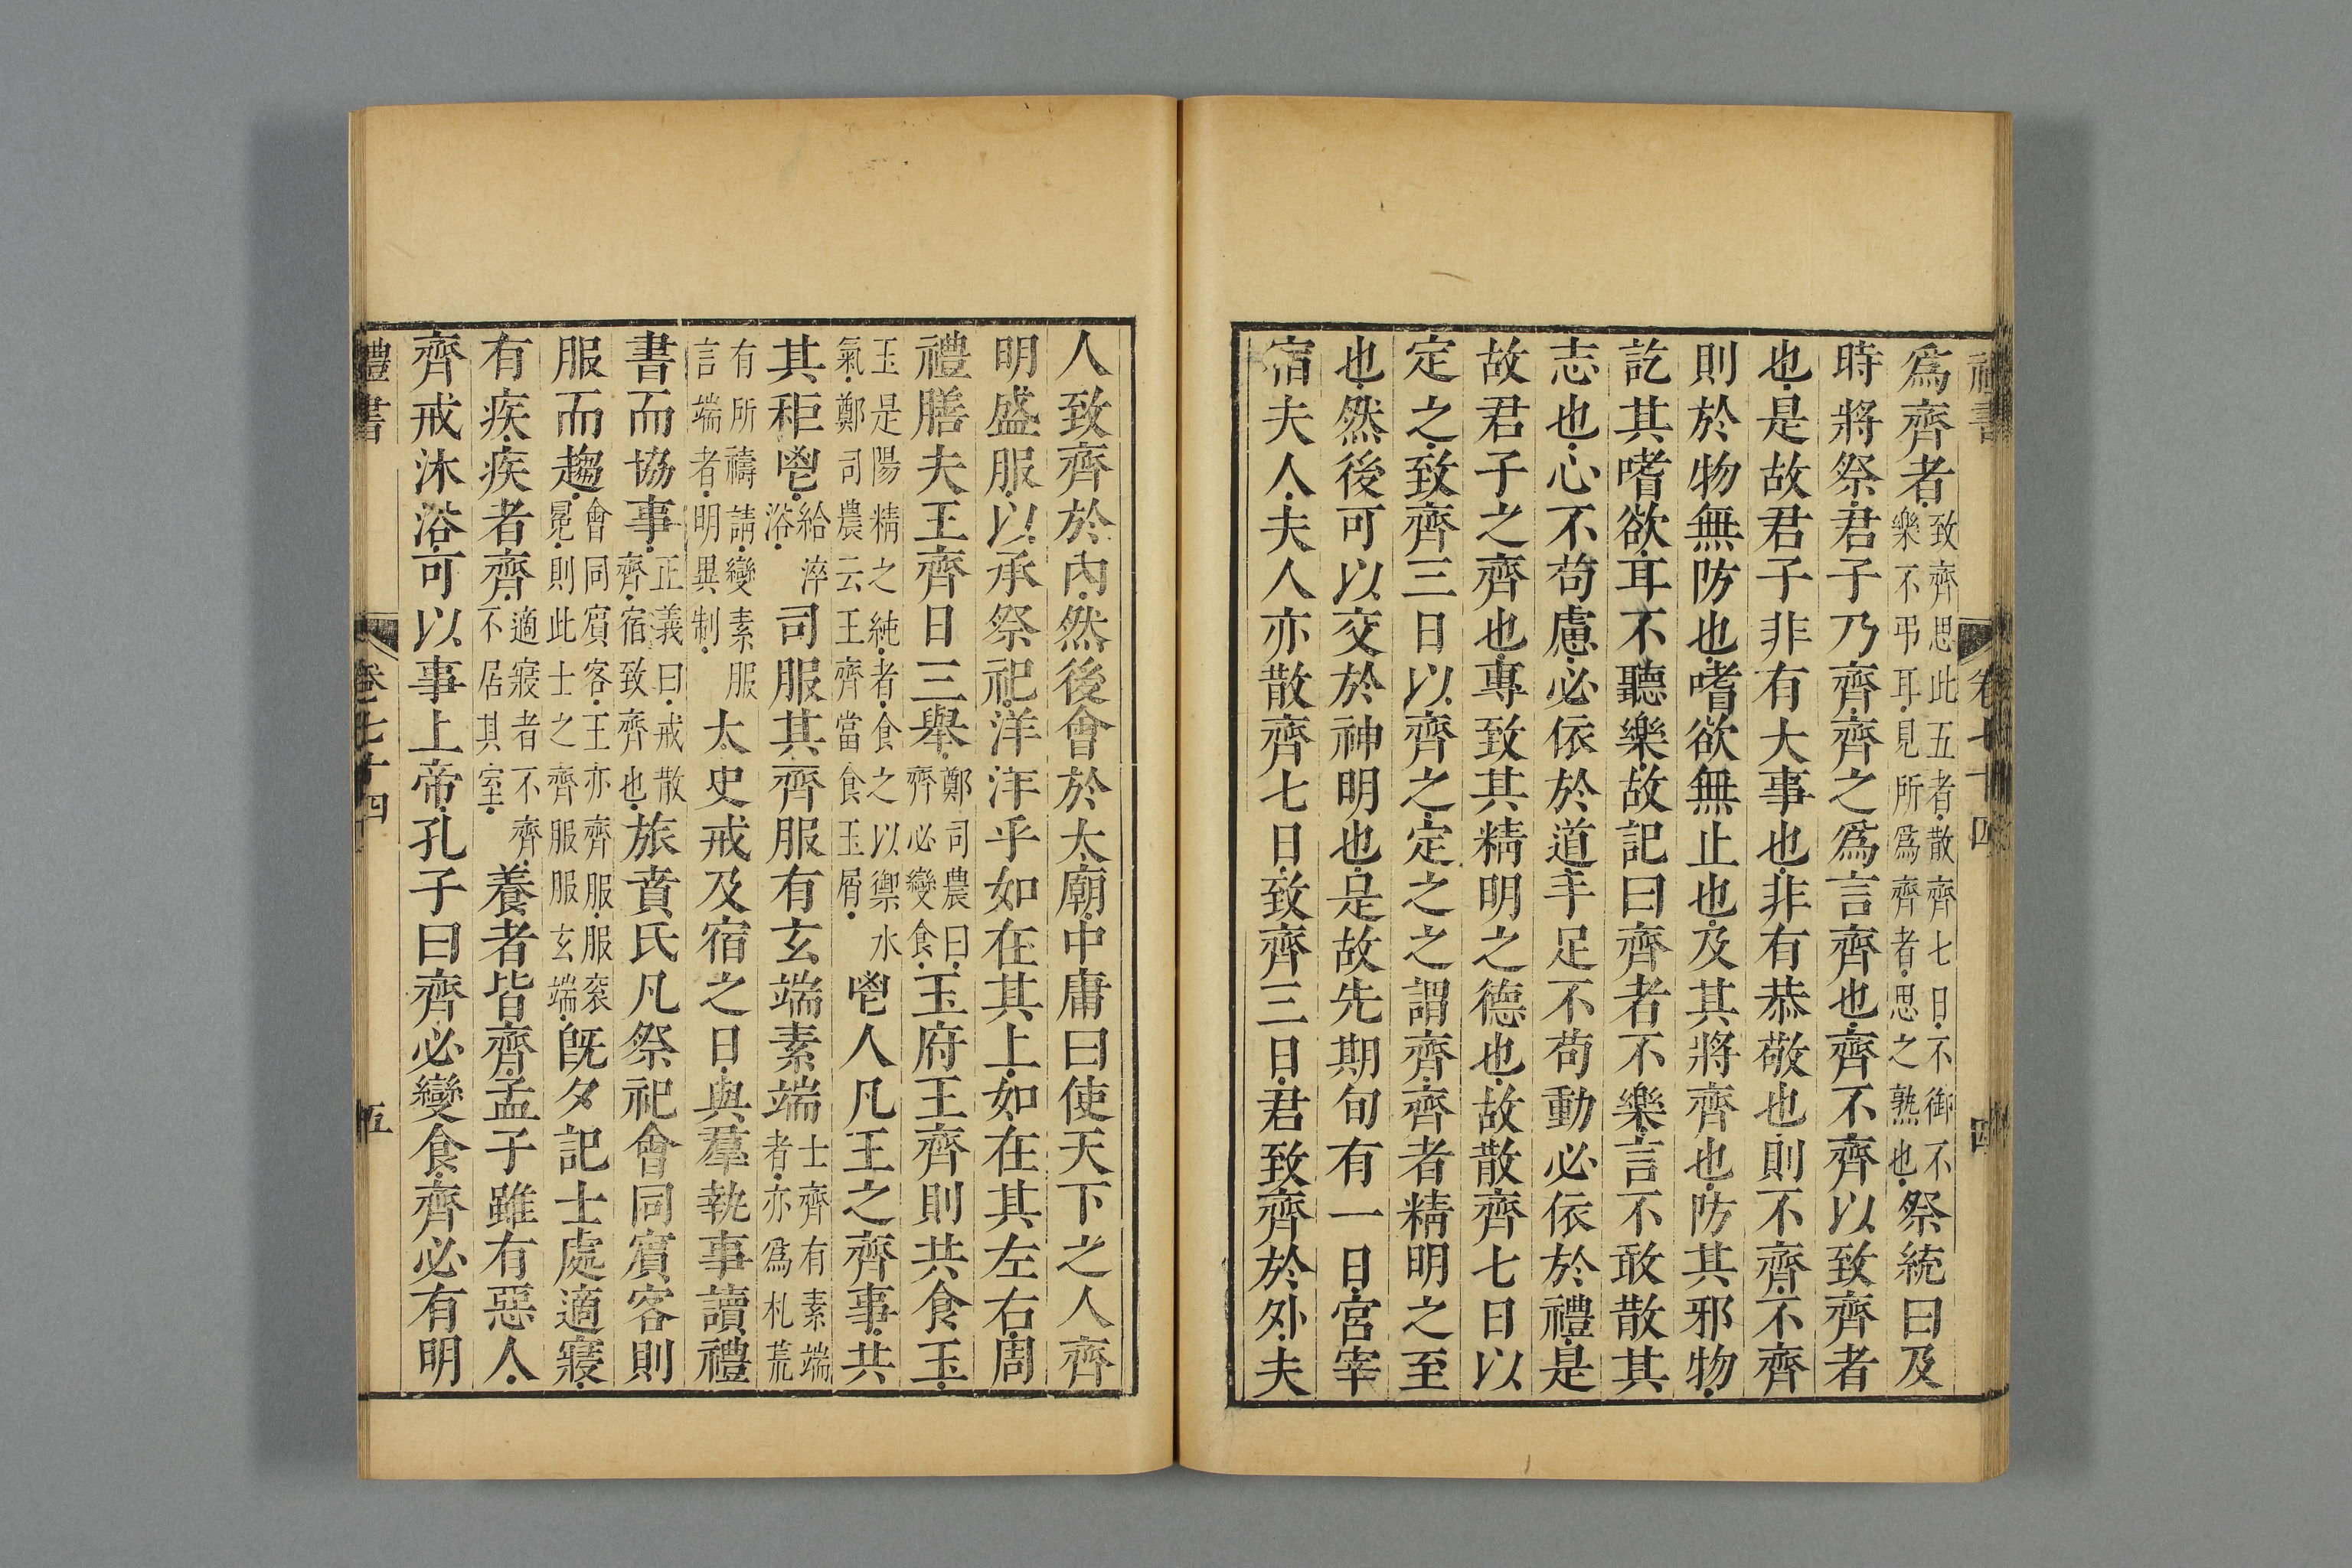 禮書 卷七十四 四
爲齊者致齊思此五者散齊七日不御不樂不弔耳見所爲齊者思之熟也祭統曰及
時將祭君子乃齊齊之爲言齊也齊不齊以致齊者
也是故君子非有大事也非有恭敬也則不齊不齊
則於物無防也嗜欲無止也及其將齊也防其邪物
訖其嗜欲耳不聽樂故記曰齊者不樂言不敢散其
志也心不苟慮必依於道手足不苟動必依於禮是
故君子之齊也專致其精明之德也故散齊七日以
定之致齊三日以齊之定之之謂齊齊者精明之至
也然後可以交於神明也是故先期旬有一日宮宰
宿夫人夫人亦散齊七日致齊三日君致齊於外夫
人致齊於內然後會於太廟中庸曰使天下之人齊
明盛服以承祭祀洋洋乎如在其上如在其左右周
禮膳夫王齊日三舉鄭司農曰齊必變食玉府王齊則共食玉
玉是陽精之純者食之以禦水氣鄭司農云王齊當食玉屑鬯人凡王之齊事共
其秬鬯給淬浴司服其齊服有玄端素端士齊有素端者亦爲札荒
有所禱請變素服言端者明異制太史戒及宿之日與羣執事讀禮
書而協事正義曰戒散齊宿致齊也旅賁氏凡祭祀會同賓客則
服而趨會同賓客王亦齊服服衮冕則此士之齊服服玄端旣夕記士處適寢
有疾疾者齊適寢者不齊不居其室養者皆齊孟子雖有惡人
齊戒沐浴可以事上帝孔子曰齊必變食齊必有明
禮書 卷七十四 五